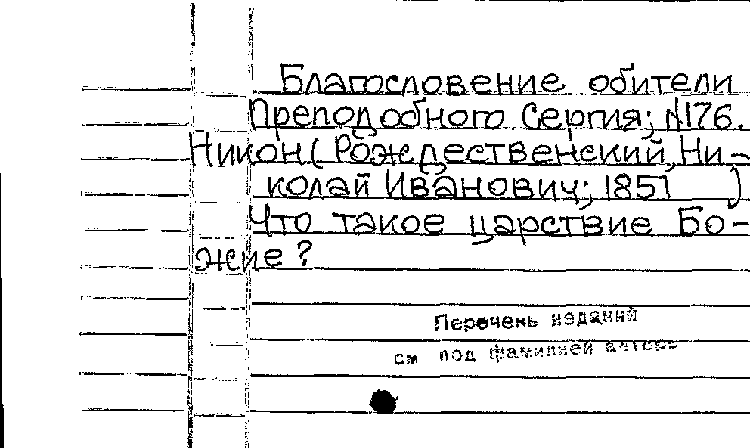 Благословение обители
Преподобного Сергия; №176.
Никон (Рождественский, Ни-
колай Иванович; 1851 )
Что такое царствие Бо-
жие?
Перечень изданий
см под фамилией автора